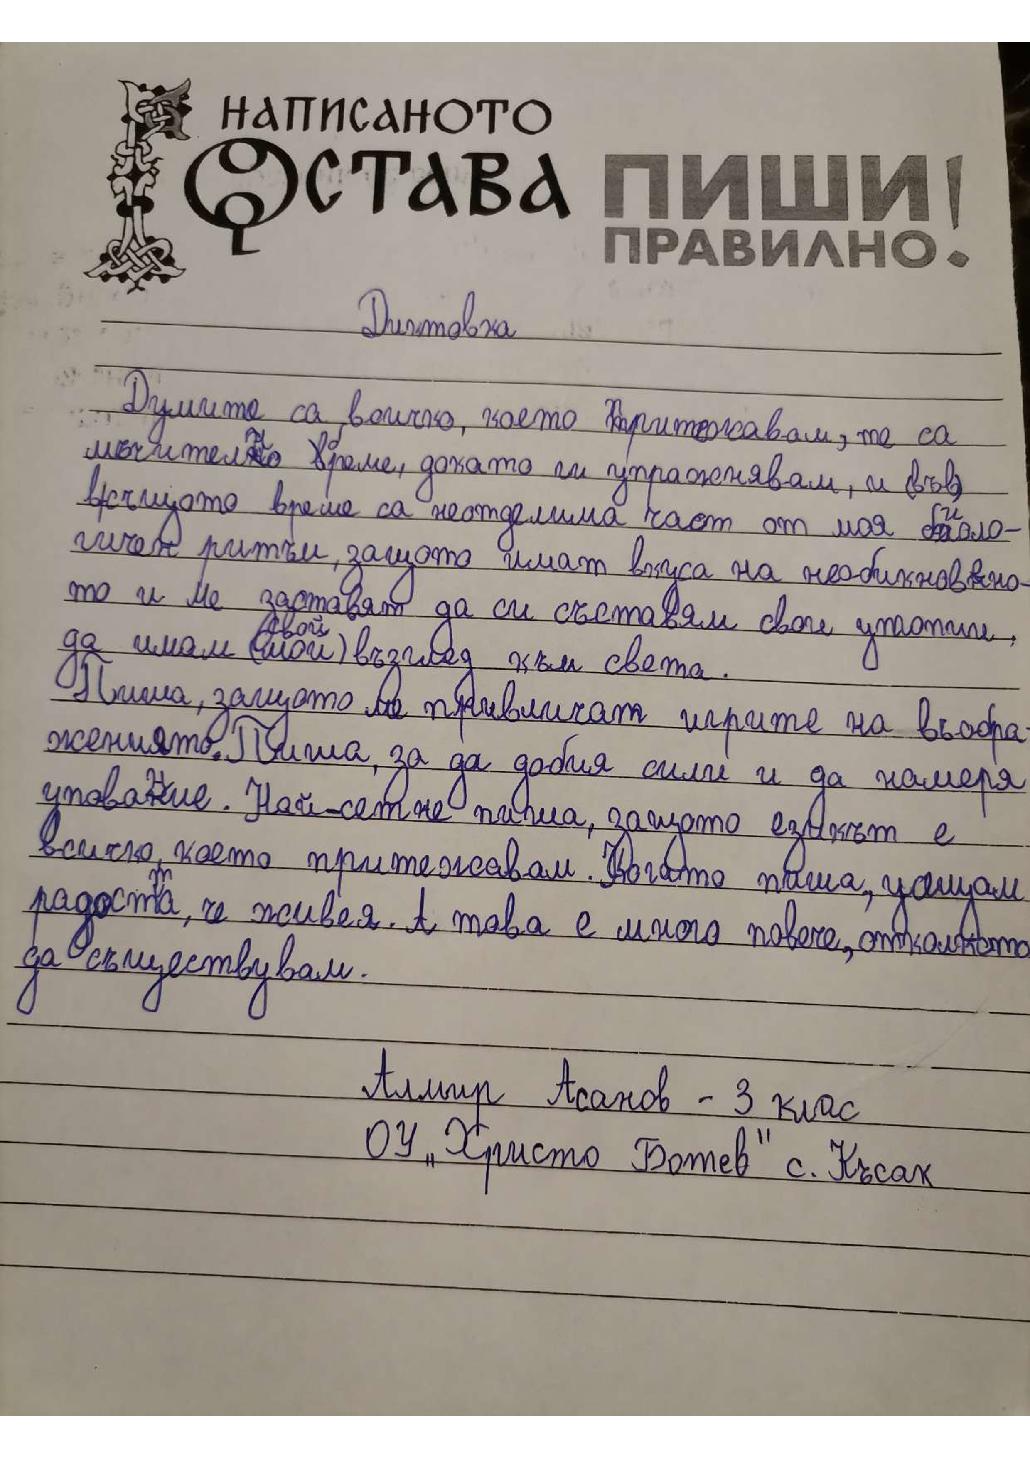 НАПИСАНОТО
ОСТАВА
ПИШИ!
ПРАВИЛНО.
Диктовка
Думите са всичко, което притежавам, те са
мъчително време, докато ги упражнявам, и (във)
същото време са неотделима част от моя биоло-
гичен ритъм, защото имат вкуса на необикновено-
то и ме заставят да си съставям свои утопии,
да имам (мой) свой възглед към света.
Пиша, защото ме привличат игрите на въобра-
жението. Пиша, за да добия сили и да намеря
упование. Най-сетне пиша, защото езикът е
всичко, което притежавам. Когато пиша, усещам
радостта, че живея. А това е много повече, отколкото
да съществувам.
Алмир Асанов - 3 клас
ОУ „Христо Ботев" с. Късак